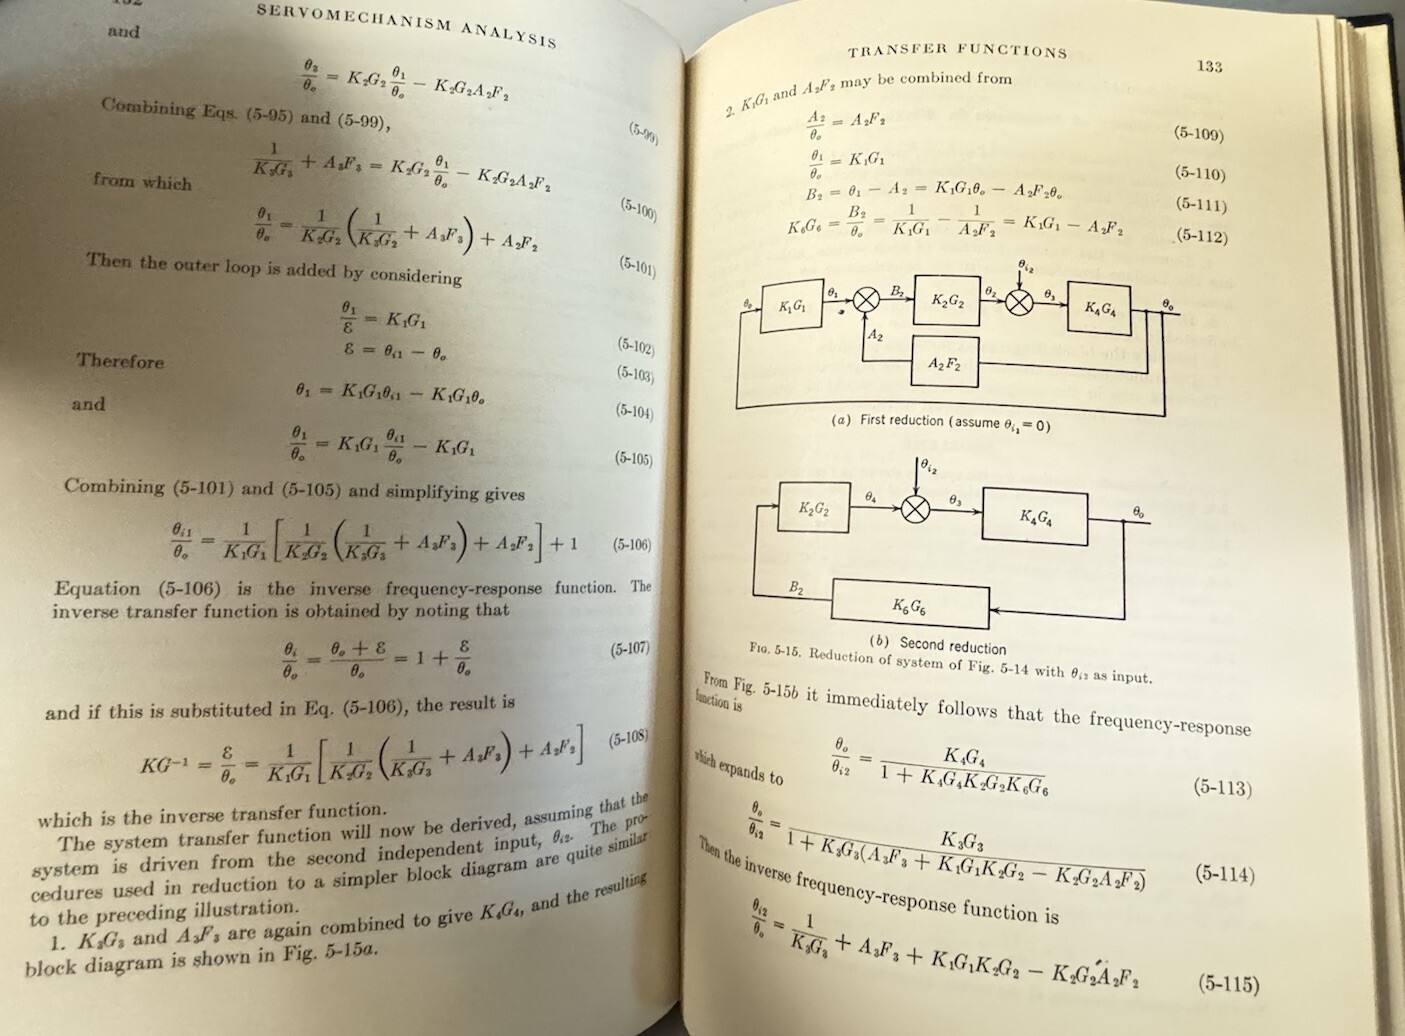 SERVOMECHANISM ANALYSIS
and
θ₃/θₒ = K₂G₂ θ₁/θₒ − K₂G₂A₂F₂ (5-99)
Combining Eqs. (5-95) and (5-99),
1/K₃G₃ + A₃F₃ = K₂G₂ θ₁/θₒ − K₂G₂A₂F₂ (5-100)
from which
θ₁/θₒ = 1/K₂G₂ (1/K₃G₂ + A₃F₃) + A₂F₂ (5-101)
Then the outer loop is added by considering
θ₁/ℰ = K₁G₁ (5-102)
ℰ = θᵢ₁ − θₒ (5-103)
Therefore
θ₁ = K₁G₁θᵢ₁ − K₁G₁θₒ (5-104)
and
θ₁/θₒ = K₁G₁ θᵢ₁/θₒ − K₁G₁ (5-105)
Combining (5-101) and (5-105) and simplifying gives
θᵢ₁/θₒ = 1/K₁G₁ [1/K₂G₂ (1/K₃G₃ + A₃F₃) + A₂F₂] + 1 (5-106)
Equation (5-106) is the inverse frequency-response function. The
inverse transfer function is obtained by noting that
θᵢ/θₒ = (θₒ + ℰ)/θₒ = 1 + ℰ/θₒ (5-107)
and if this is substituted in Eq. (5-106), the result is
KG⁻¹ = ℰ/θₒ = 1/K₁G₁ [1/K₂G₂ (1/K₃G₃ + A₃F₃) + A₂F₂] (5-108)
which is the inverse transfer function.
The system transfer function will now be derived, assuming that the
system is driven from the second independent input, θᵢ₂. The pro-
cedures used in reduction to a simpler block diagram are quite similar
to the preceding illustration.
1. K₃G₃ and A₃F₃ are again combined to give K₄G₄, and the resulting
block diagram is shown in Fig. 5-15a.
TRANSFER FUNCTIONS 133
2. K₁G₁ and A₂F₂ may be combined from
A₂/θₒ = A₂F₂ (5-109)
θ₁/θₒ = K₁G₁ (5-110)
B₂ = θ₁ − A₂ = K₁G₁θₒ − A₂F₂θₒ (5-111)
K₆G₆ = B₂/θₒ = 1/K₁G₁ − 1/A₂F₂ = K₁G₁ − A₂F₂ (5-112)
θᵢ₂
θₒ K₁G₁ θ₁ B₂ K₂G₂ θ₂ θ₃ K₄G₄ θₒ
A₂
A₂F₂
(a) First reduction (assume θᵢ₁ = 0)
θᵢ₂
K₂G₂ θ₄ θ₃ K₄G₄ θₒ
B₂ K₆G₆
(b) Second reduction
FIG. 5-15. Reduction of system of Fig. 5-14 with θᵢ₂ as input.
From Fig. 5-15b it immediately follows that the frequency-response
function is
θₒ/θᵢ₂ = K₄G₄/(1 + K₄G₄K₂G₂K₆G₆) (5-113)
which expands to
θₒ/θᵢ₂ = K₃G₃/(1 + K₃G₃(A₃F₃ + K₁G₁K₂G₂ − K₂G₂A₂F₂)) (5-114)
Then the inverse frequency-response function is
θᵢ₂/θₒ = 1/K₃G₃ + A₃F₃ + K₁G₁K₂G₂ − K₂G₂A₂F₂ (5-115)